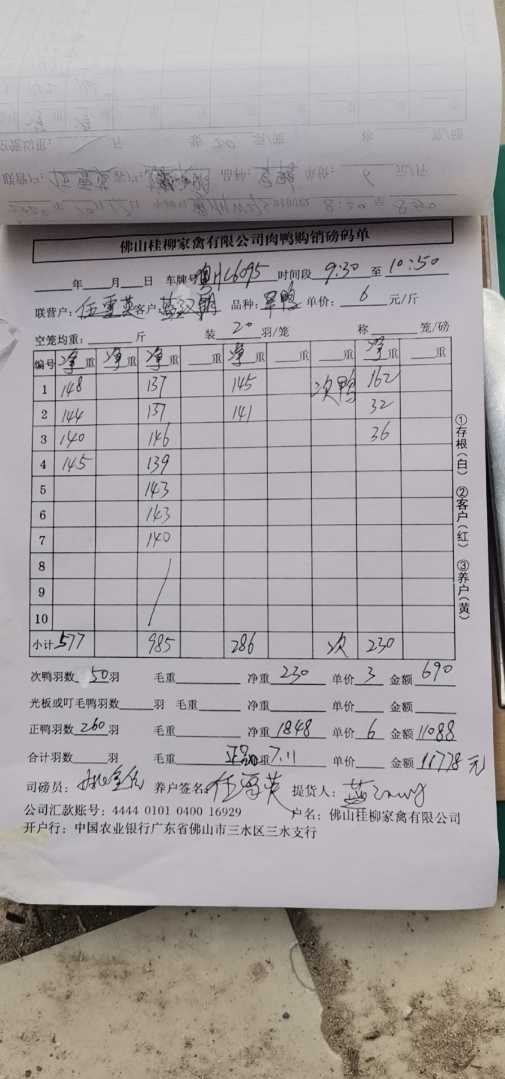 佛山桂柳家禽有限公司肉鸭购销磅码单
年 月 日 车牌号 粤HL6095 时间段 9:30 至 10:50
联营户: 伍雪英 客户: 品种: 单价: 6 元/斤
空笼均重: 斤 装 20 羽/笼 称 笼/磅
编号 净重 净重 净重 重 净重 重 重 净重 重
1 148 137 145 次鸭 162
2 144 137 141 32
3 140 146 36
4 145 139
5 143
6 143
7 140
8
9
10
小计 577 985 286 次 230
①存根(白) ②客户(红) ③养户(黄)
次鸭羽数 50 羽 毛重 净重 230 单价 3 金额 690
光板或叮毛鸭羽数 羽 毛重 净重 单价 金额
正鸭羽数 260 羽 毛重 净重 1848 单价 6 金额 11088
合计羽数 羽 毛重 重 7.11 单价 金额 11778 元
司磅员: 养户签名: 伍雪英 提货人: 蓝
公司汇款账号: 4444 0101 0400 16929 户名: 佛山桂柳家禽有限公司
开户行: 中国农业银行广东省佛山市三水区三水支行